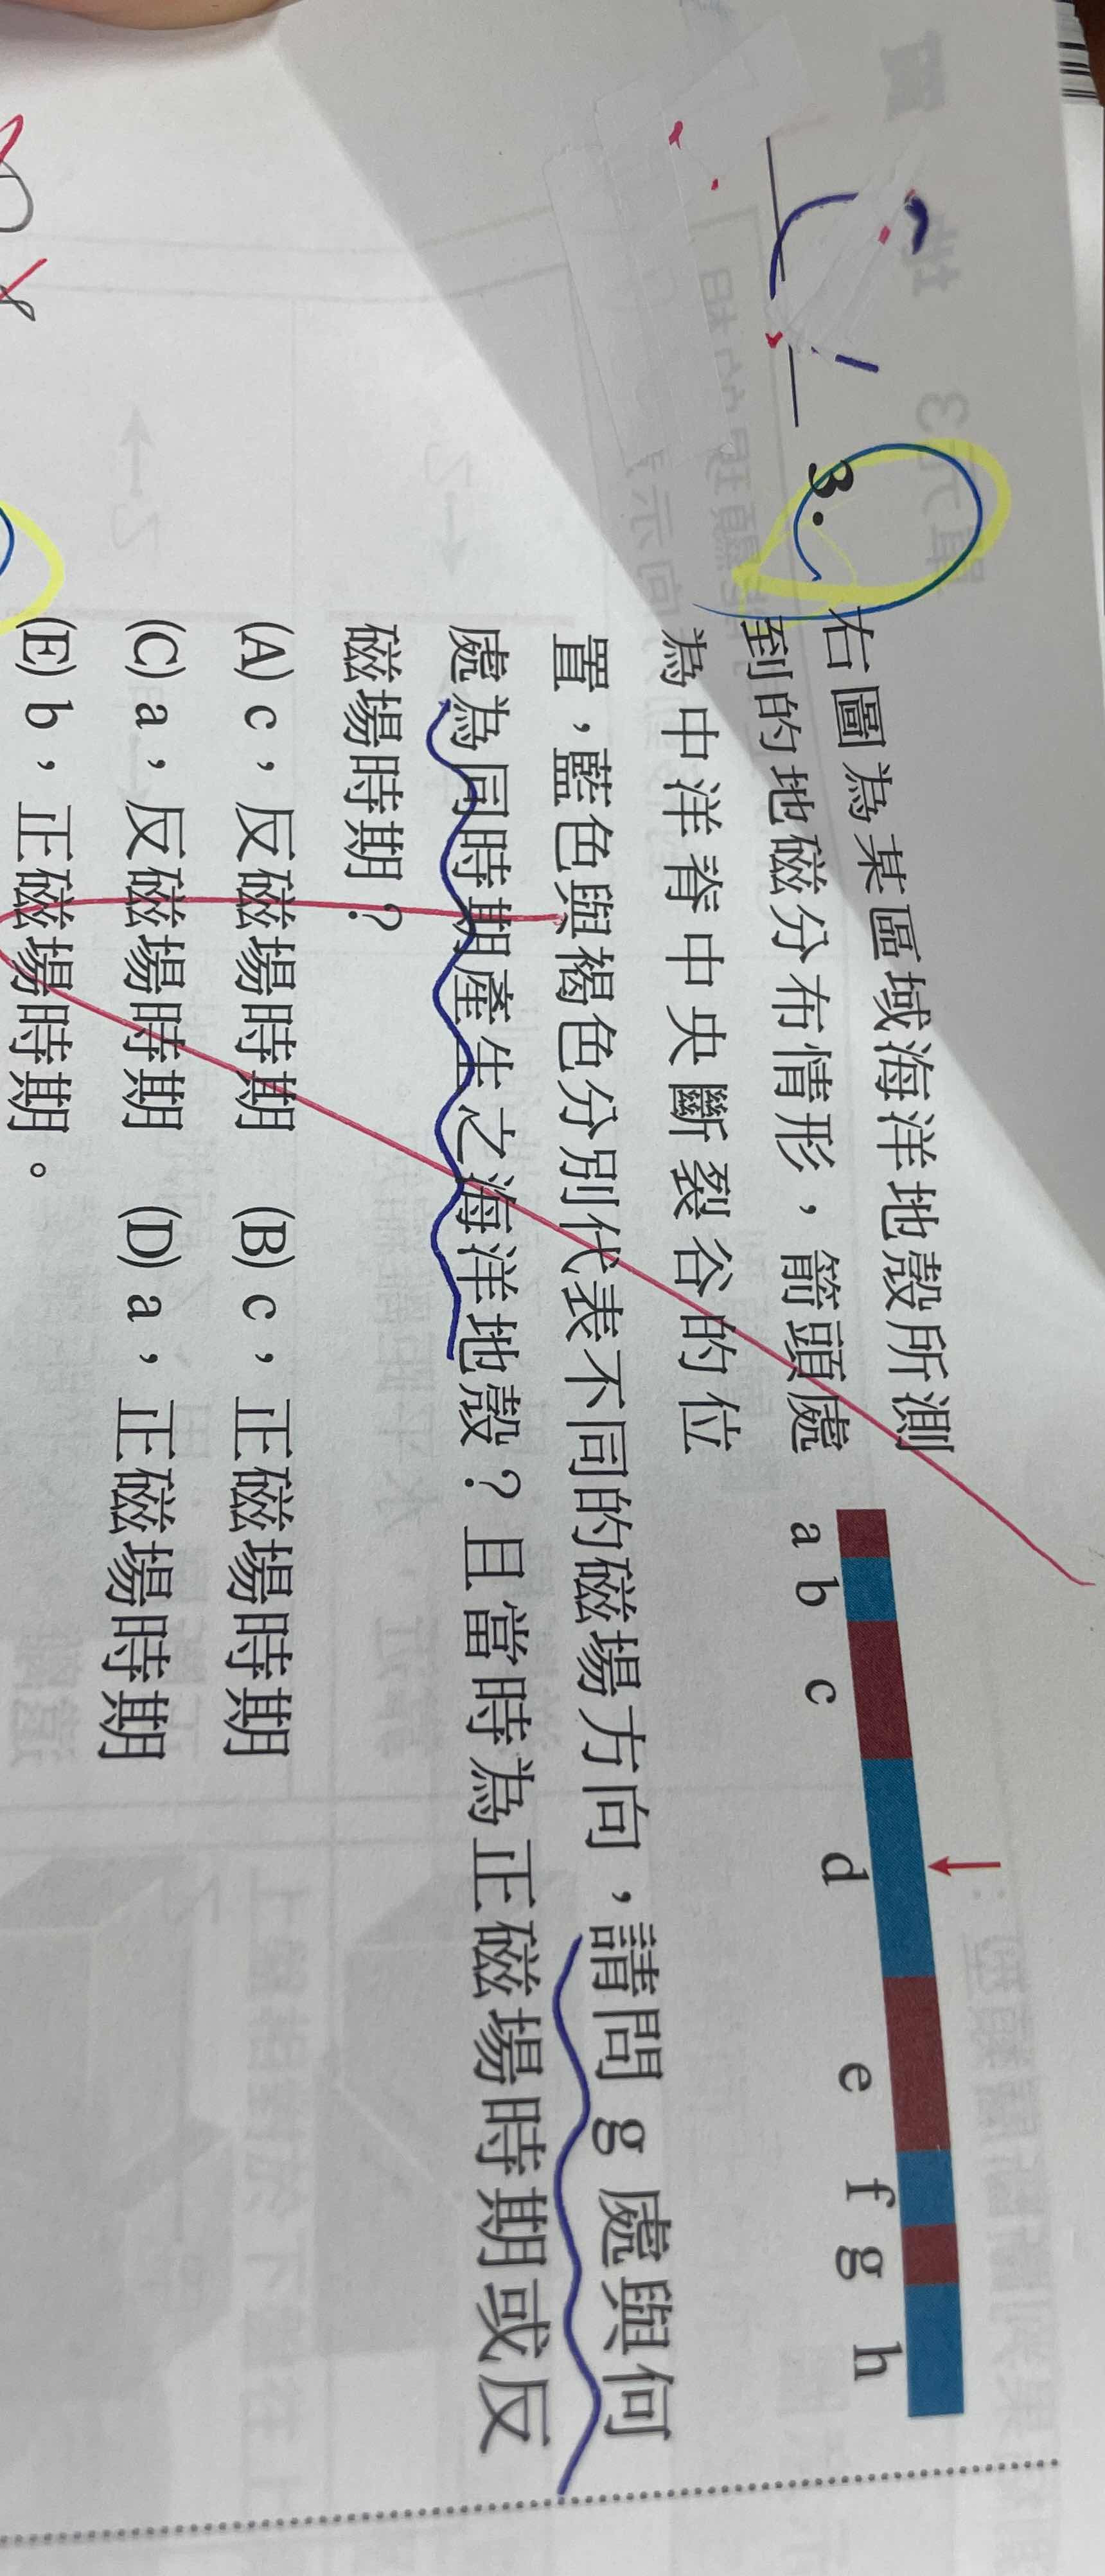 3.
右圖為某區域海洋地殼所測
到的地磁分布情形，箭頭處
為中洋脊中央斷裂谷的位
置，藍色與褐色分別代表不同的磁場方向，請問 g 處與何
處為同時期產生之海洋地殼？且當時為正磁場時期或反
磁場時期？
(A) c，反磁場時期 (B) c，正磁場時期
(C) a，反磁場時期 (D) a，正磁場時期
(E) b，正磁場時期。
a b c d e f g h